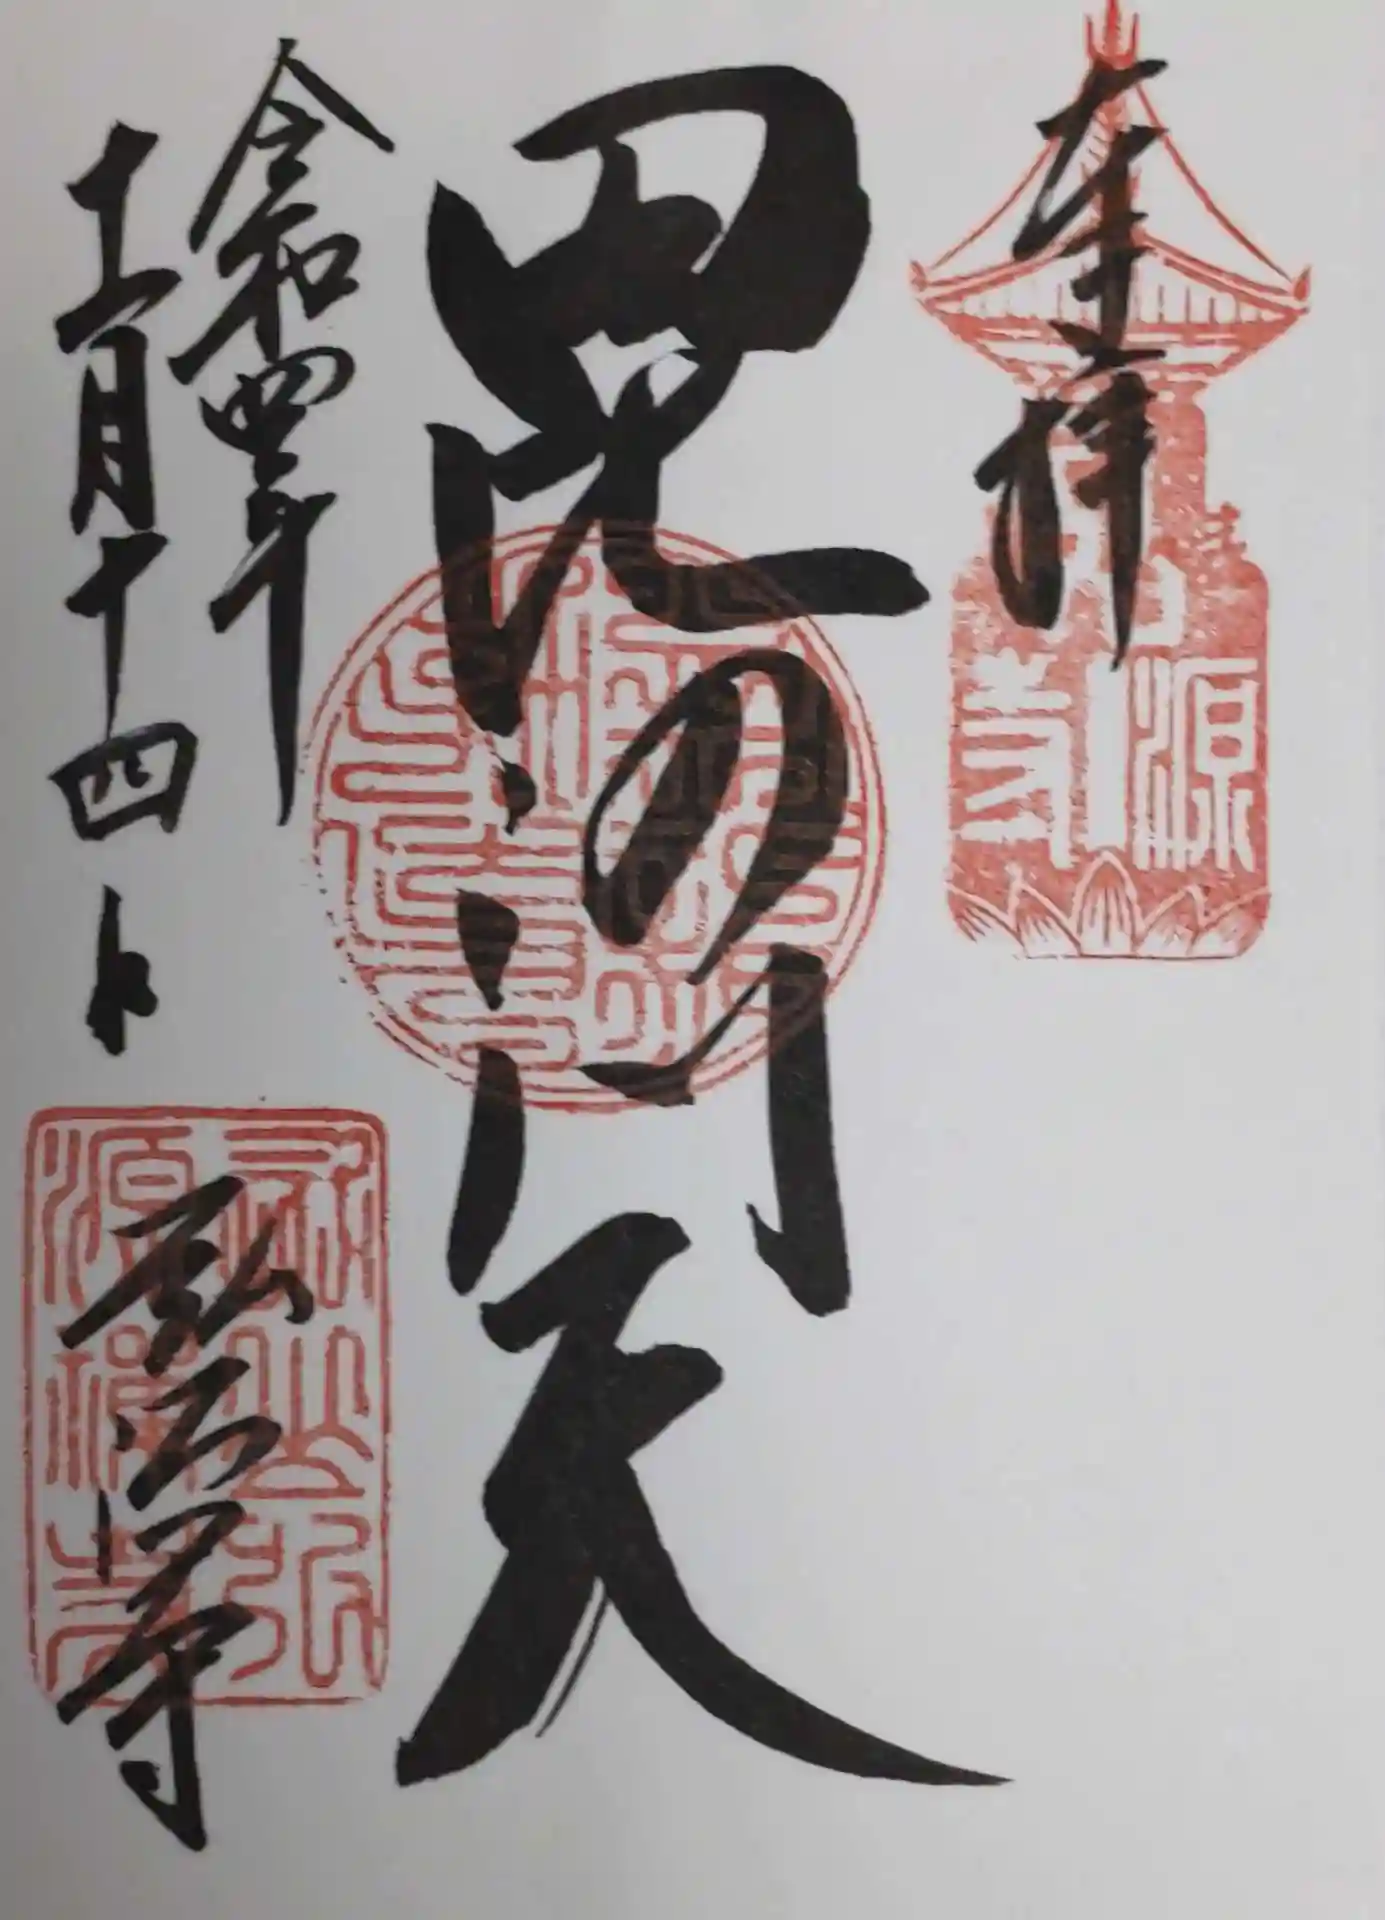 奉拝
毘沙門天
令和四年
十一月十四日
弘源寺